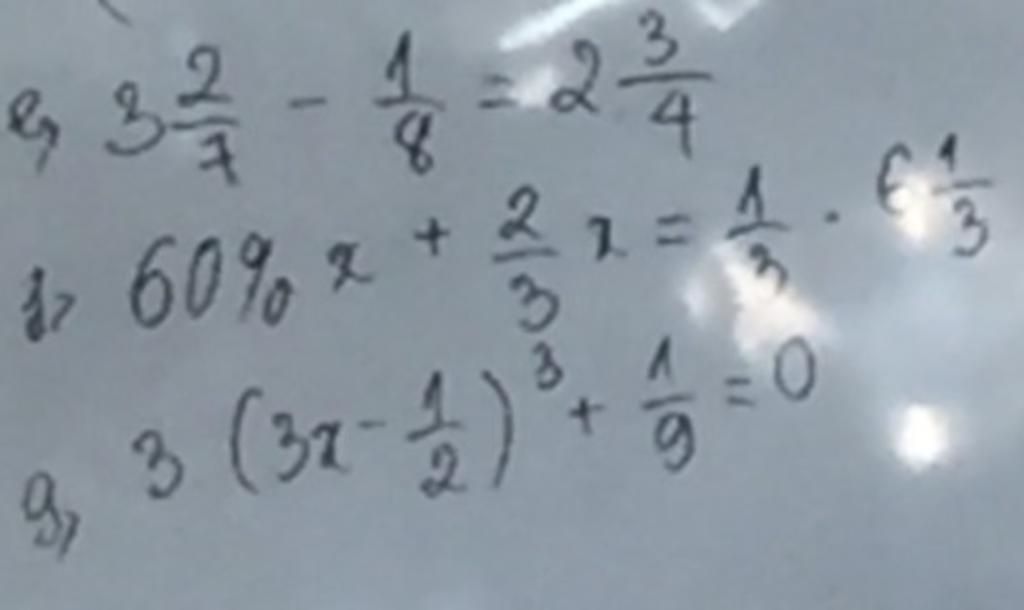 e, 3 2/7 - 1/8 = 2 3/4
f, 60% x + 2/3 x = 1/3 . 6 1/3
g, 3 (3x - 1/2)^3 + 1/9 = 0